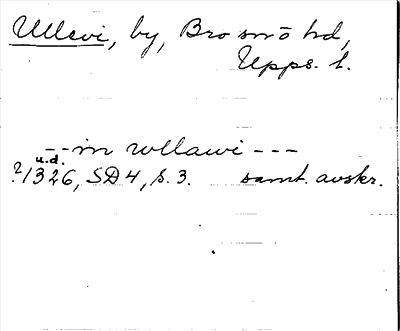 Ullevi, by, Bro snö hd,
Upps. l.
-- in wllawi ---
u.d.
?1326, SD 4, s. 3. samt. avskr.